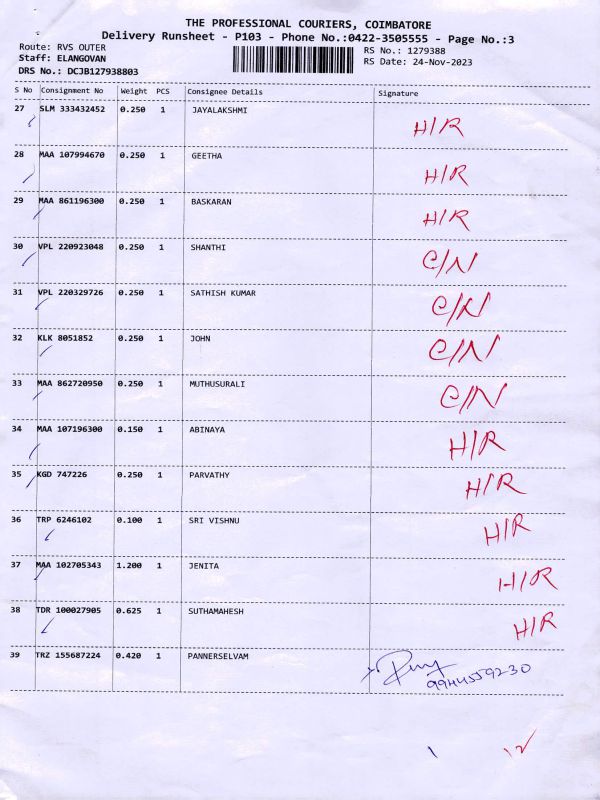 THE PROFESSIONAL COURIERS, COIMBATORE
Delivery Runsheet - P103 - Phone No.:0422-3505555 - Page No.:3
Route: RVS OUTER RS No.: 1279388
Staff: ELANGOVAN RS Date: 24-Nov-2023
DRS No.: DCJB127938803
S No Consignment No Weight PCS Consignee Details Signature
27 SLM 333432452 0.250 1 JAYALAKSHMI H/R
28 MAA 107994670 0.250 1 GEETHA H/R
29 MAA 861196300 0.250 1 BASKARAN H/R
30 VPL 220923048 0.250 1 SHANTHI C/N
31 VPL 220329726 0.250 1 SATHISH KUMAR C/N
32 KLK 8051852 0.250 1 JOHN C/N
33 MAA 862720950 0.250 1 MUTHUSURALI C/N
34 MAA 107196300 0.150 1 ABINAYA H/R
35 KGD 747226 0.250 1 PARVATHY H/R
36 TRP 6246102 0.100 1 SRI VISHNU H/R
37 MAA 102705343 1.200 1 JENITA H/R
38 TDR 100027905 0.625 1 SUTHAMAHESH H/R
39 TRZ 155687224 0.420 1 PANNERSELVAM
9944559230
1 12